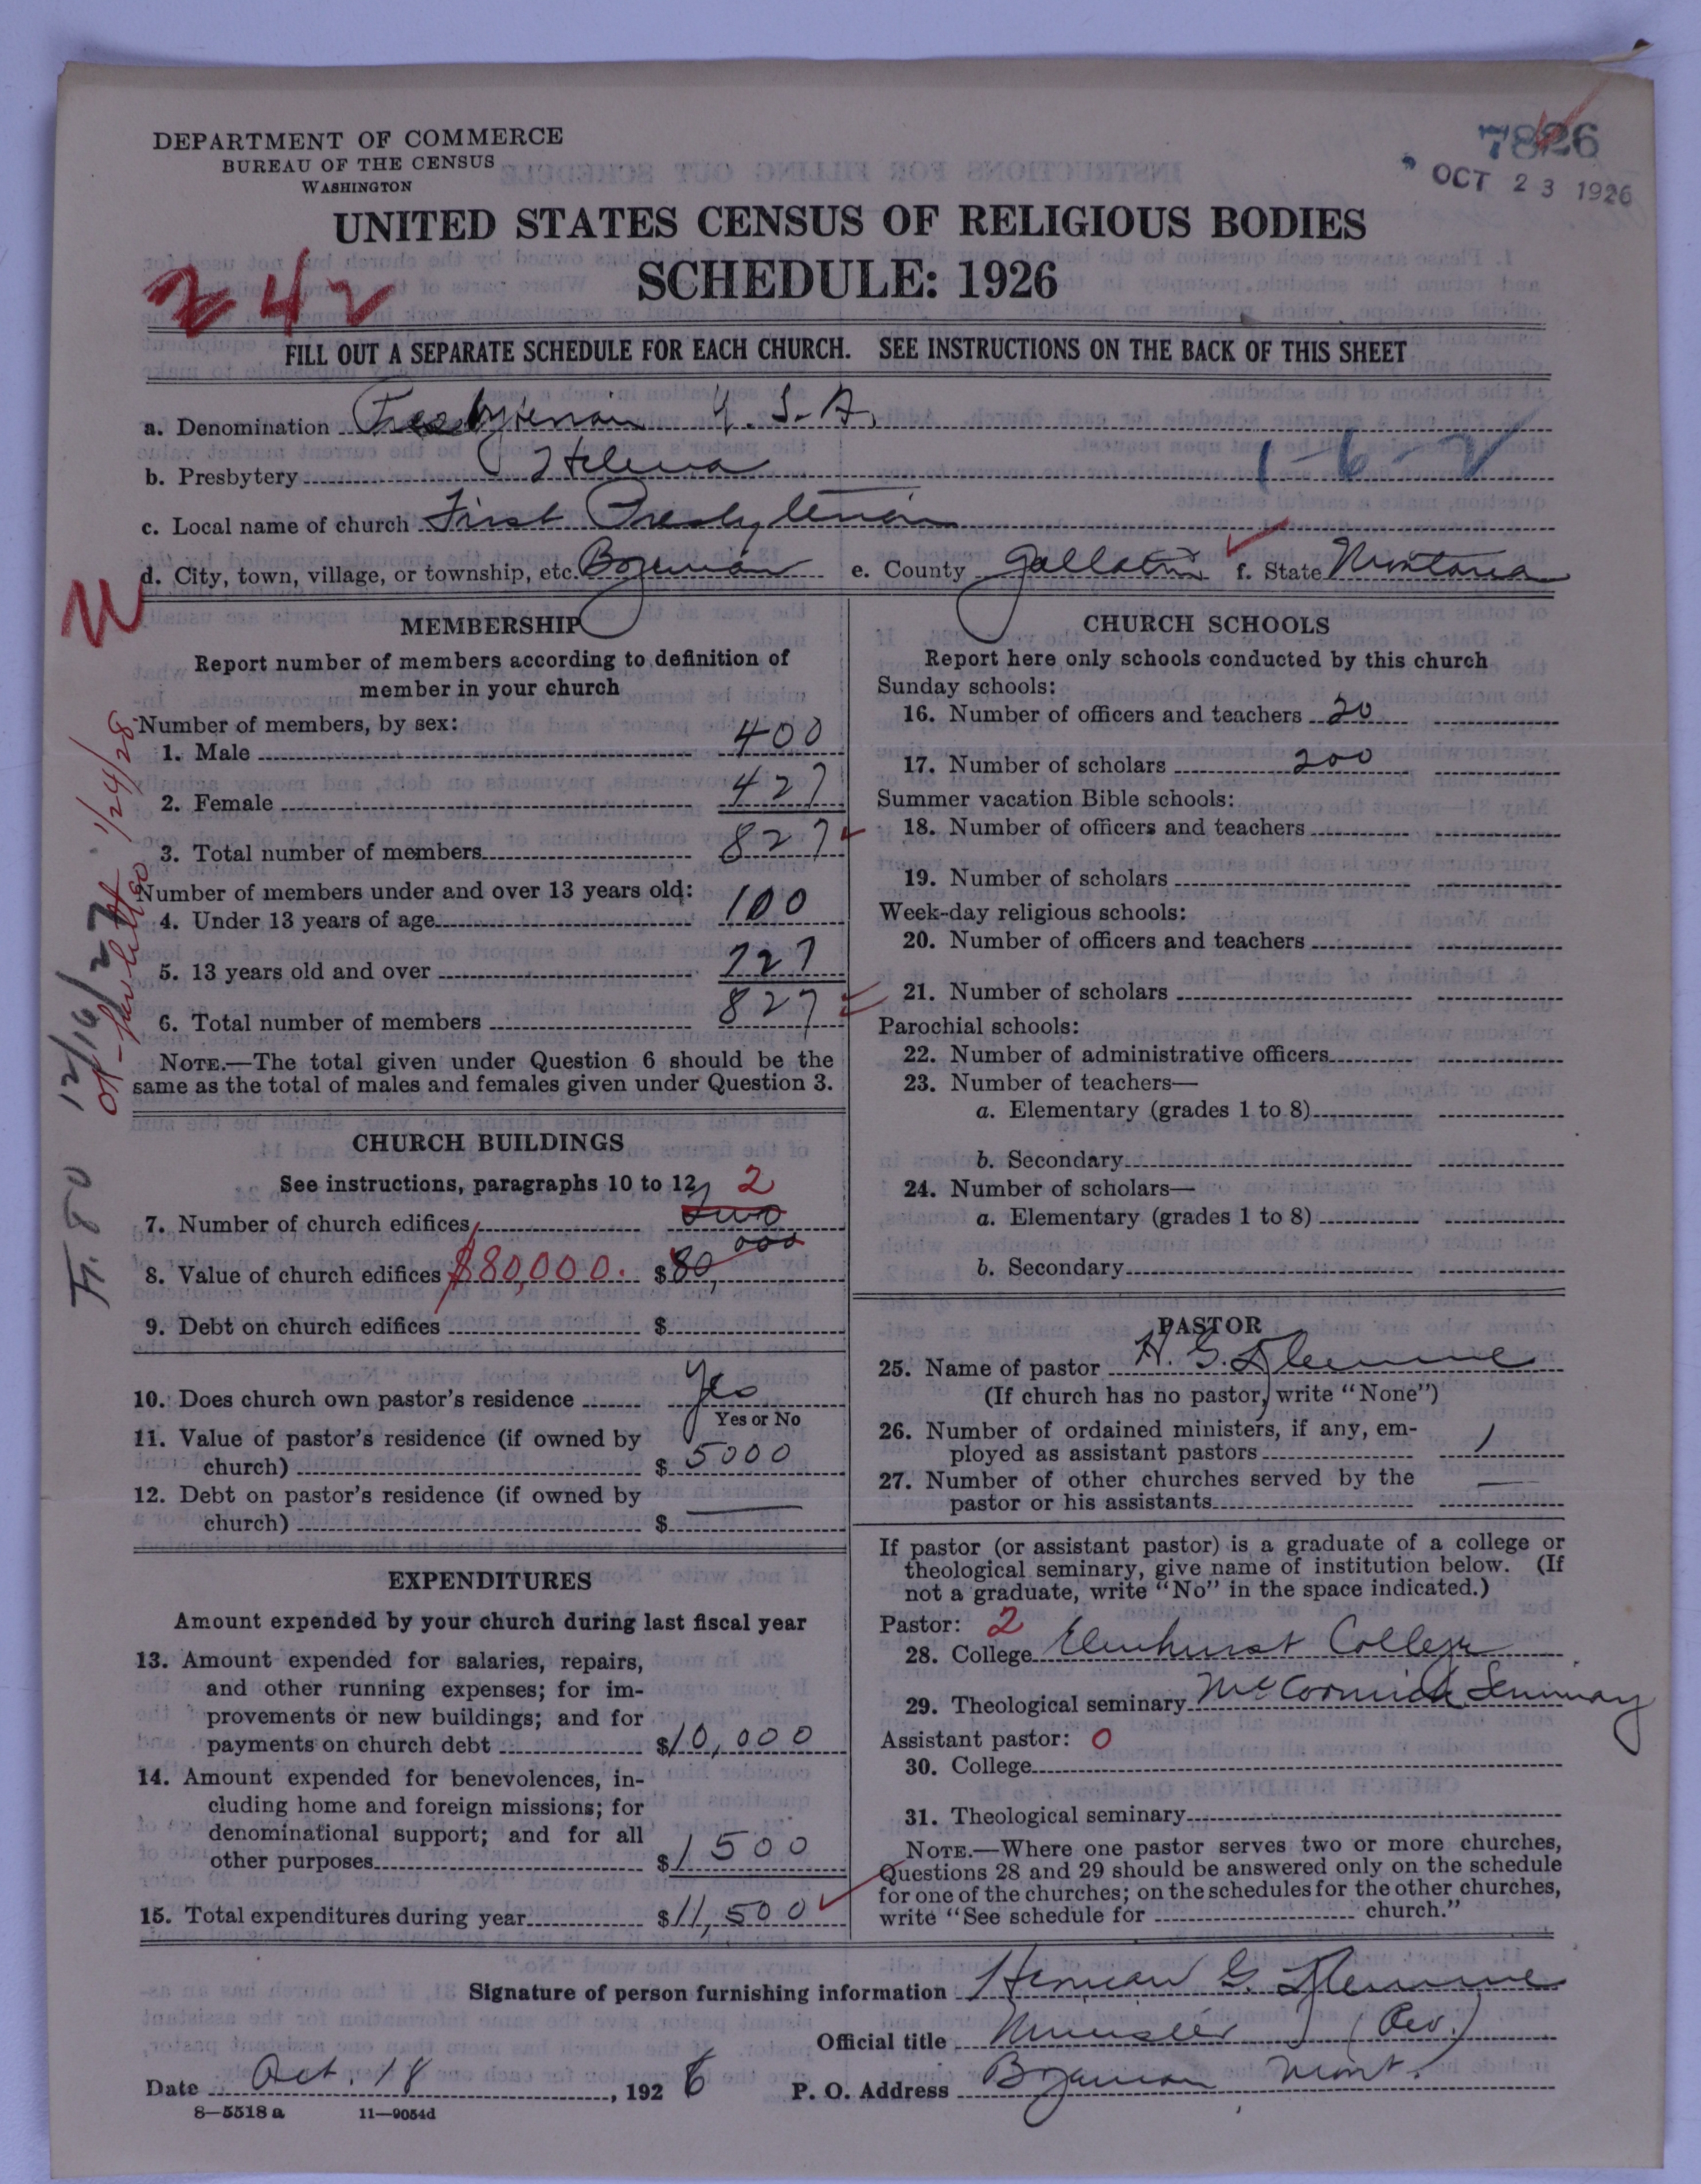 DEPARTMENT OF COMMERCE
BUREAU OF THE CENSUS
WASHINGTON
7826
OCT 23 1926
UNITED STATES CENSUS OF RELIGIOUS BODIES
SCHEDULE: 1926
242
FILL OUT A SEPARATE SCHEDULE FOR EACH CHURCH. SEE INSTRUCTIONS ON THE BACK OF THIS SHEET
a. Denomination Presbyterian U.S.A.
1-6-2
b. Presbytery Helena
c. Local name of church First Presbyterian
d. City, town, village, or township, etc. Bozeman e. County Gallatin f. State Montana
MEMBERSHIP
Report number of members according to definition of
member in your church
Number of members, by sex:
1. Male 400
2. Female 427
3. Total number of members 827
Number of members under and over 13 years old:
4. Under 13 years of age 100
5. 13 years old and over 727
6. Total number of members 827
NOTE.—The total given under Question 6 should be the
same as the total of males and females given under Question 3.
12/16/27
1/24/28
CHURCH BUILDINGS
See instructions, paragraphs 10 to 12
2
7. Number of church edifices two
8. Value of church edifices $80,000. $80,000
9. Debt on church edifices $
10. Does church own pastor's residence Yes
Yes or No
11. Value of pastor's residence (if owned by
church) $ 5000
12. Debt on pastor's residence (if owned by
church) $ —
EXPENDITURES
Amount expended by your church during last fiscal year
13. Amount expended for salaries, repairs,
and other running expenses; for im-
provements or new buildings; and for
payments on church debt $10,000
14. Amount expended for benevolences, in-
cluding home and foreign missions; for
denominational support; and for all
other purposes $1500
15. Total expenditures during year $11,500
CHURCH SCHOOLS
Report here only schools conducted by this church
Sunday schools:
16. Number of officers and teachers 20
17. Number of scholars 200
Summer vacation Bible schools:
18. Number of officers and teachers
19. Number of scholars
Week-day religious schools:
20. Number of officers and teachers
21. Number of scholars
Parochial schools:
22. Number of administrative officers
23. Number of teachers—
a. Elementary (grades 1 to 8)
b. Secondary
24. Number of scholars—
a. Elementary (grades 1 to 8)
b. Secondary
PASTOR
25. Name of pastor H. G. Klemme
(If church has no pastor, write "None")
26. Number of ordained ministers, if any, em-
ployed as assistant pastors 1
27. Number of other churches served by the
pastor or his assistants —
If pastor (or assistant pastor) is a graduate of a college or
theological seminary, give name of institution below. (If
not a graduate, write "No" in the space indicated.)
Pastor: 2
28. College Elmhurst College
29. Theological seminary McCormick Seminary
Assistant pastor: 0
30. College
31. Theological seminary
NOTE.—Where one pastor serves two or more churches,
Questions 28 and 29 should be answered only on the schedule
for one of the churches; on the schedules for the other churches,
write "See schedule for church."
Signature of person furnishing information Herman G. Klemme
Official title Minister (Rev.)
Date Oct. 18, 1926 P. O. Address Bozeman Mont.
8—5518a 11—9054d